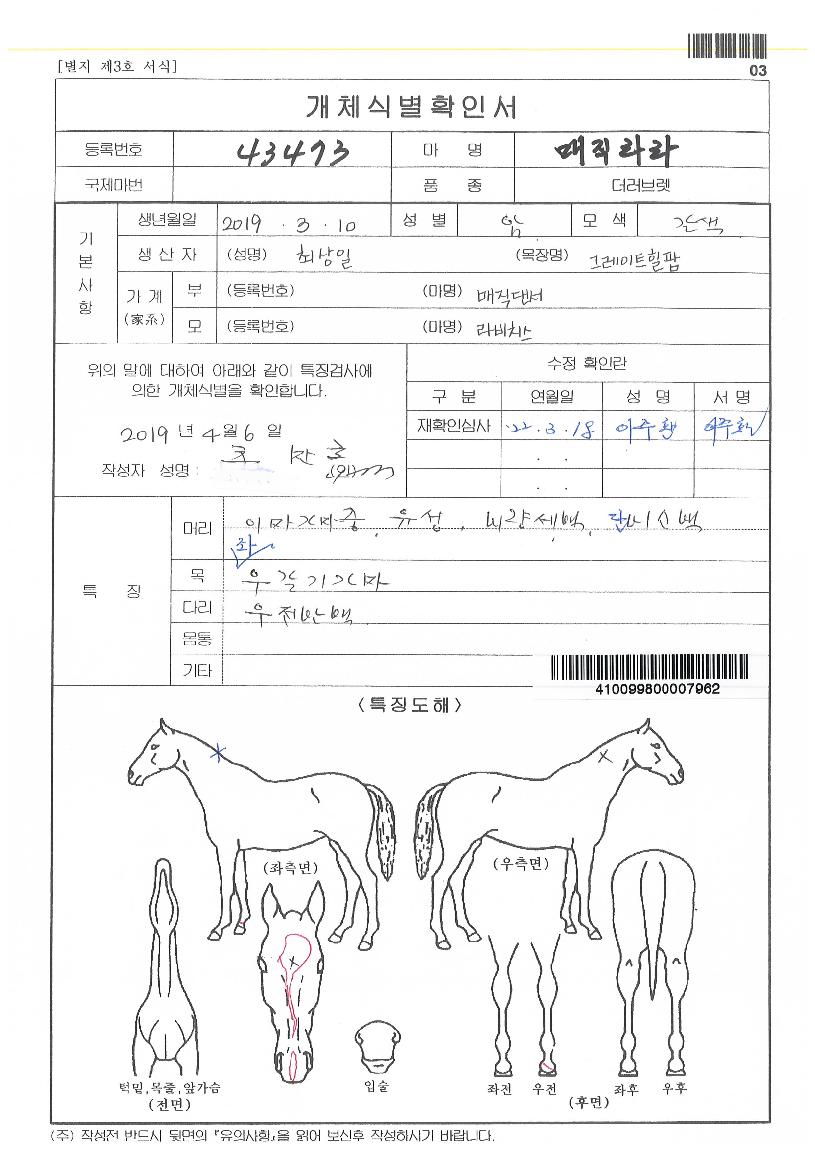 03
[별지 제3호 서식]
개체식별확인서
등록번호 43473 마 명 매직라라
국제마번 품 종 더러브렛
기본사항
생년월일 2019 . 3 . 10 성 별 암 모 색 갈색
생 산 자 (성명) 최상일 (목장명) 그레이트힐팜
가 계 (家系)
부 (등록번호) (마명) 매직댄서
모 (등록번호) (마명) 라비치스
위의 말에 대하여 아래와 같이 특징검사에
의한 개체식별을 확인합니다.
2019 년 4월 6 일
작성자 성명 :
수정 확인란
구 분 연월일 성 명 서 명
재확인심사 '22. 3. 18
. .
. .
특 징
머리 이마가마중, 유성, 비량세백, 단비신백
좌
목 우갈기가마
다리 우전반백
몸통
기타
410099800007962
<특징도해>
(좌측면)
(우측면)
턱밑,목줄,앞가슴
(전면)
입술
좌전 우전 좌후 우후
(후면)
(주) 작성전 반드시 뒷면의 『유의사항』을 읽어 보신후 작성하시기 바랍니다.